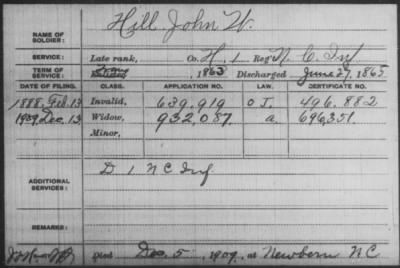 NAME OF SOLDIER: Hill John W.
SERVICE: Late rank, Co. H. 1 Reg't N. C. Inf
TERM OF SERVICE: Enlisted , 1863 Discharged June 27, 1865
DATE OF FILING. CLASS. APPLICATION NO. LAW. CERTIFICATE NO.
1888, Feb. 13 Invalid, 639.919 O J. 496.882
1909, Dec. 13 Widow, 932.087. a. 696351.
Minor,
ADDITIONAL SERVICES: D 1 N C Inf
REMARKS:
Died Dec. 5 1909, at Newbern N C